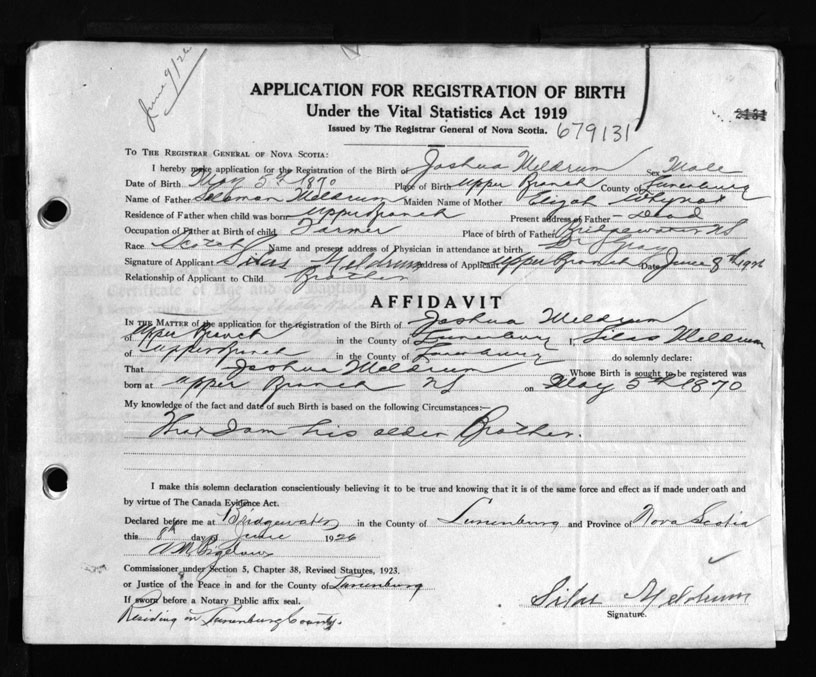 June 9/26
APPLICATION FOR REGISTRATION OF BIRTH
Under the Vital Statistics Act 1919
Issued by The Registrar General of Nova Scotia. 679131
TO THE REGISTRAR GENERAL OF NOVA SCOTIA:
I hereby make application for the Registration of the Birth of Joshua Meldrum Sex Male
Date of Birth May 5th 1870 Place of Birth Upper Branch County of Lunenburg
Name of Father Soloman Meldrum Maiden Name of Mother Elizah Whynot
Residence of Father when child was born Upper Branch Present address of Father Dead
Occupation of Father at Birth of child Farmer Place of birth of Father Bridgewater NS
Race Scotch Name and present address of Physician in attendance at birth Dr Gray
Signature of Applicant Silas Meldrum Address of Applicant Upper Branch Date June 8th 1926
Relationship of Applicant to Child Brother
AFFIDAVIT
IN THE MATTER of the application for registration of the Birth of Joshua Meldrum
of Upper Branch in the County of Lunenburg I, Silas Meldrum
of Upper Branch in the County of Lunenburg do solemnly declare:
That Joshua Meldrum Whose Birth is sought to be registered was
born at Upper Branch NS on May 5th 1870
My knowledge of the fact and date of such Birth is based on the following Circumstances:—
That I am his older Brother.
I make this solemn declaration conscientiously believing it to be true and knowing that it is of the same force and effect as if made under oath and
by virtue of The Canada Evidence Act.
Declared before me at Bridgewater in the County of Lunenburg and Province of Nova Scotia
this 8th day of June 1926
Commissioner under Section 5, Chapter 38, Revised Statutes, 1923.
or Justice of the Peace in and for the County of Lunenburg
If sworn before a Notary Public affix seal.
Silas Meldrum
Signature.
Residing in Lunenburg County.